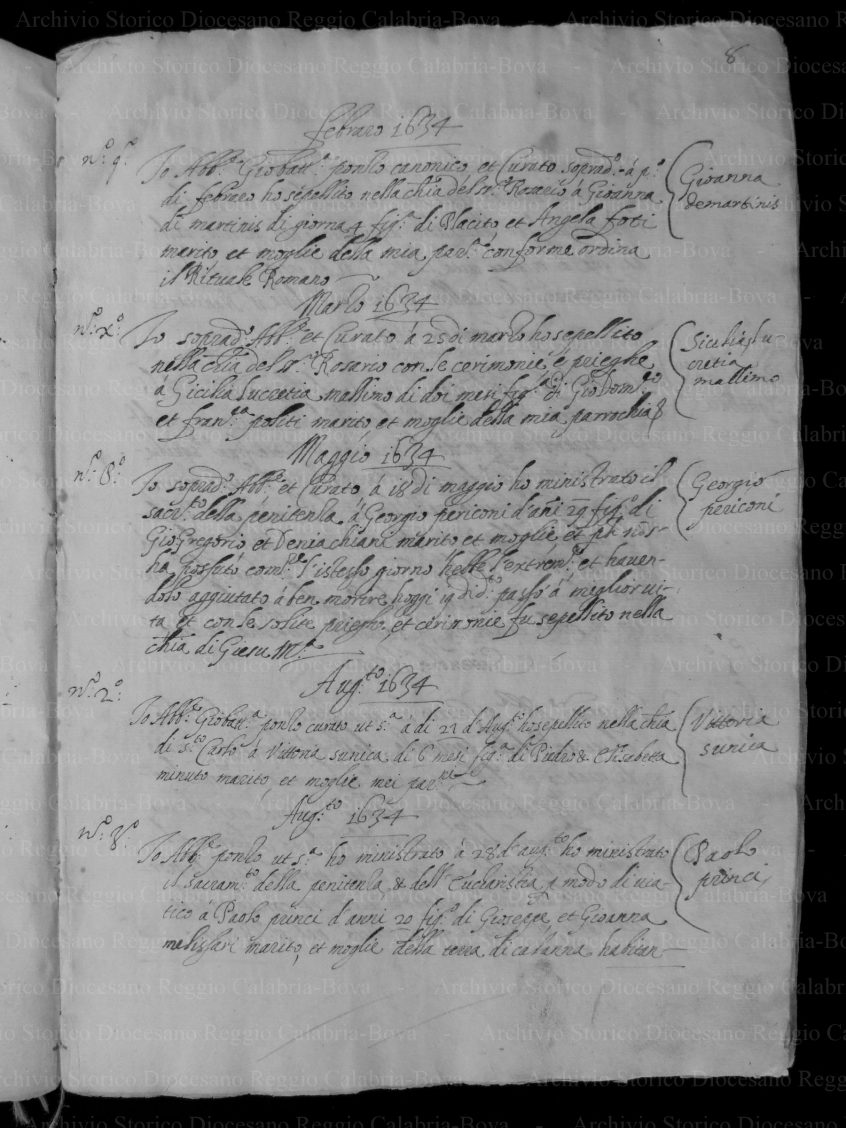 8
Febraro 1634
n.º 9.º Io Abb.e Giobatt.a ponzo canonico, et Curato soprad.º à p.º
di febraro ho sepellito nella chia del ss.º Rosario à Gioanna
di martinis di giorna 4 fig.a di Placito, et Angela foti
marito, et moglie della mia par.a conforme ordina
il Rituale Romano
Gioanna
demartinis
Marzo 1634
Io soprad.º Abb.e et Curato à 25 di marzo ho sepellito
nella chia del ss.º Rosario con le cerimonie, e prieghe
à Cicilia Lucretia massimo di doi mesi fig.a di Gio
et Fran.ca politi marito, et moglie della mia parrochia &
Sicilia Lu
cretia
massimo
Maggio 1634
n.º 8.º Io soprad.º Abb.e et Curato, à 18 di maggio ho ministrato il
sacr.to della penitenza à Georgio periconi d'anni 29 fig.º di
Gio Gregorio et Denia chiani marito et moglie, et
l'istesso giorno hebbe l'extrem. et haven-
dolo aggiutato à ben morire, hoggi 19 di d.º passò à meglior vi-
ta et con le solite et cerimonie fu sepellito nella
chia di Giesu M.a
Georgio
periconi
Aug.to 1634
n.º 2.º Io Abb.e Giobatt.a ponzo curato ut s.a à di 21 d'Aug.to ho sepellito nella chia
di s.to Carlo à Vittoria sunica di 6 mesi fig.a di Pietro & Elisabetta
minuto marito, et moglie miei par.ni
Vittoria
sunica
Aug.to 1634
n.º 3.º Io Abb.e ponzo ut s.a ho ministrato à 28 d'aug.to ho ministrato
il sacram.to della penitenza & dell'Eucharistia p modo di via-
tico à Paolo princi d'anni 20 fig.º di Gioseppe et Gioanna
melissari marito, et moglie della terra di calanna habitan-
Paolo
princi
Archivio Storico Diocesano Reggio Calabria-Bova